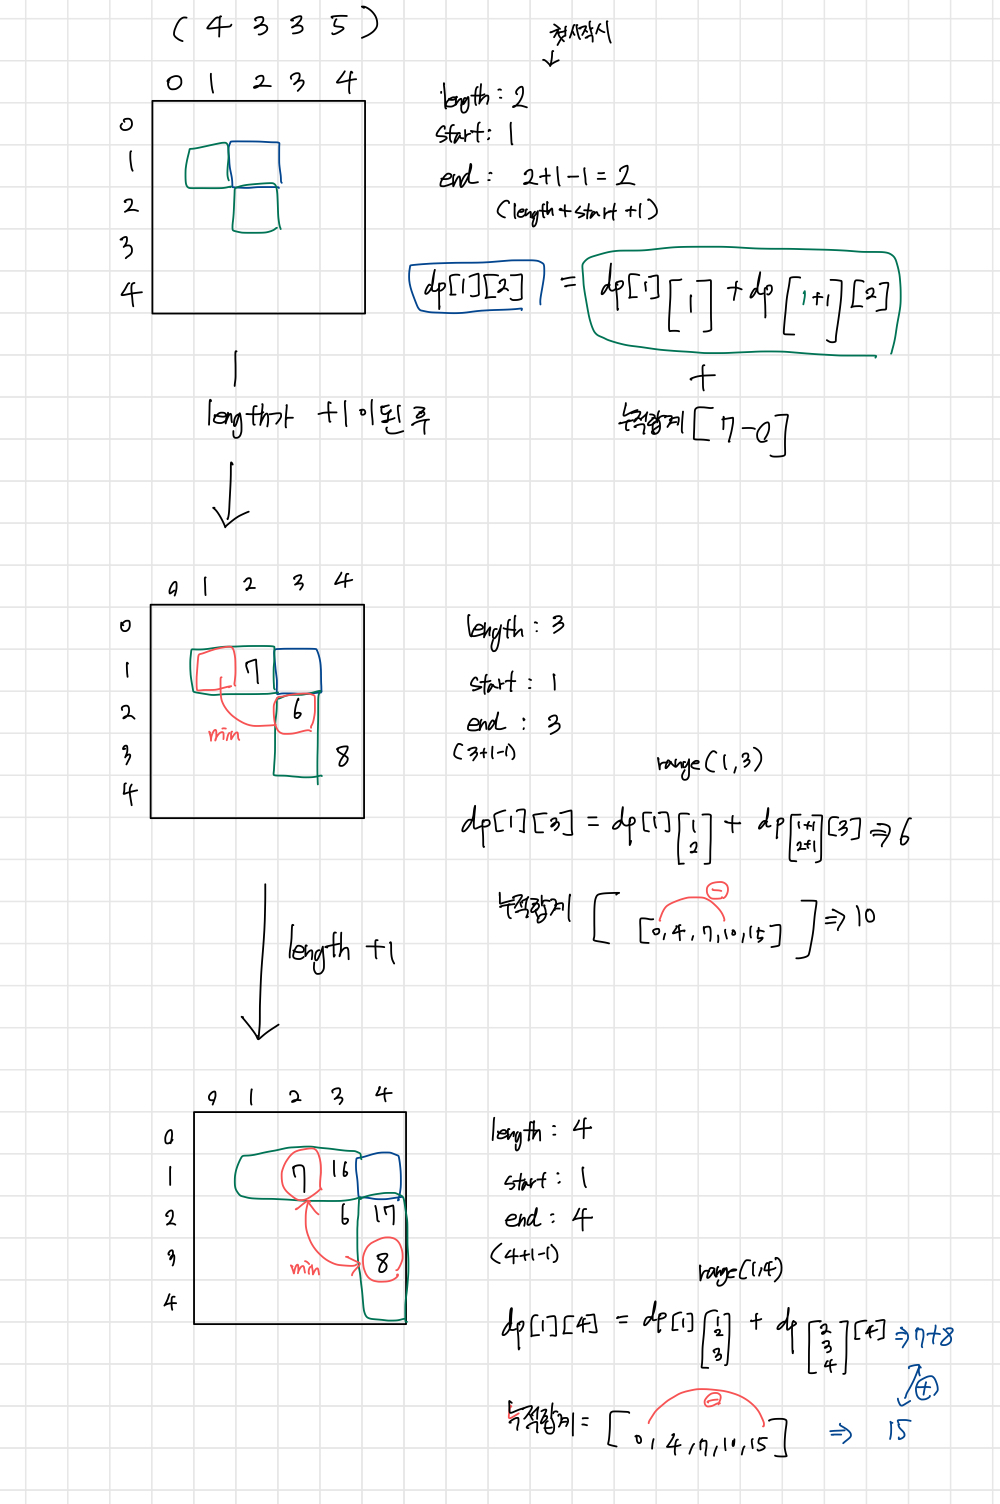 ( 4 3 3 5 )
첫시작시
0 1 2 3 4
0
1
2
3
4
length : 2
start : 1
end : 2+1-1 = 2
(length + start +1)
dp[1][2] = dp[1][1] + dp[1+1][2]
+
누적합계 [7-0]
length가 +1 이 된 후
0 1 2 3 4
0
1 7
2 6
3 8
4
min
length : 3
start : 1
end : 3
(3+1-1)
range(1,3)
dp[1][3] = dp[1][1 2] + dp[1+1 2+1][3] ⇒ 6
누적합계 [[0,4,7,10,15]] ⇒ 10
-
length +1
0 1 2 3 4
0
1 7 16
2 6 17
3 8
4
min
length : 4
start : 1
end : 4
(4+1-1)
range(1,4)
dp[1][4] = dp[1][1 2 3] + dp[2 3 4][4] ⇒ 7+8
+
누적합계 = [0, 4, 7, 10, 15] ⇒ 15
-